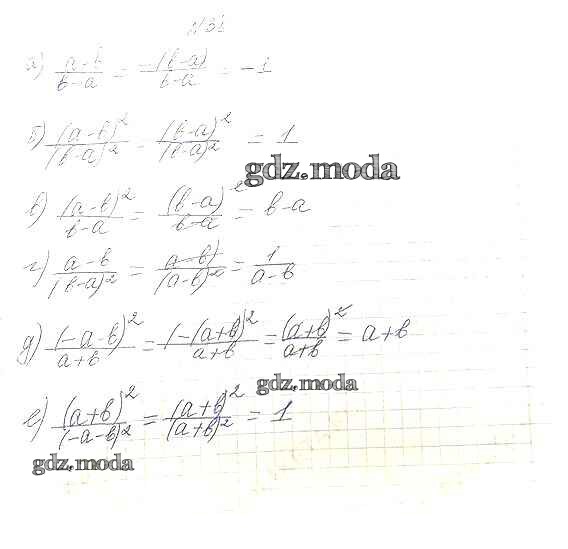 N 31
а) (a-b)/(b-a) = (-(b-a))/(b-a) = -1
б) (a-b)²/(b-a)² = (b-a)²/(b-a)² = 1
gdz.moda
в) (a-b)²/(b-a) = (b-a)²/(b-a) = b-a
г) (a-b)/(b-a)² = (a-b)/(a-b)² = 1/(a-b)
д) (-a-b)²/(a+b) = (-(a+b))²/(a+b) = (a+b)²/(a+b) = a+b
gdz.moda
е) (a+b)²/(-a-b)² = (a+b)²/(a+b)² = 1
gdz.moda